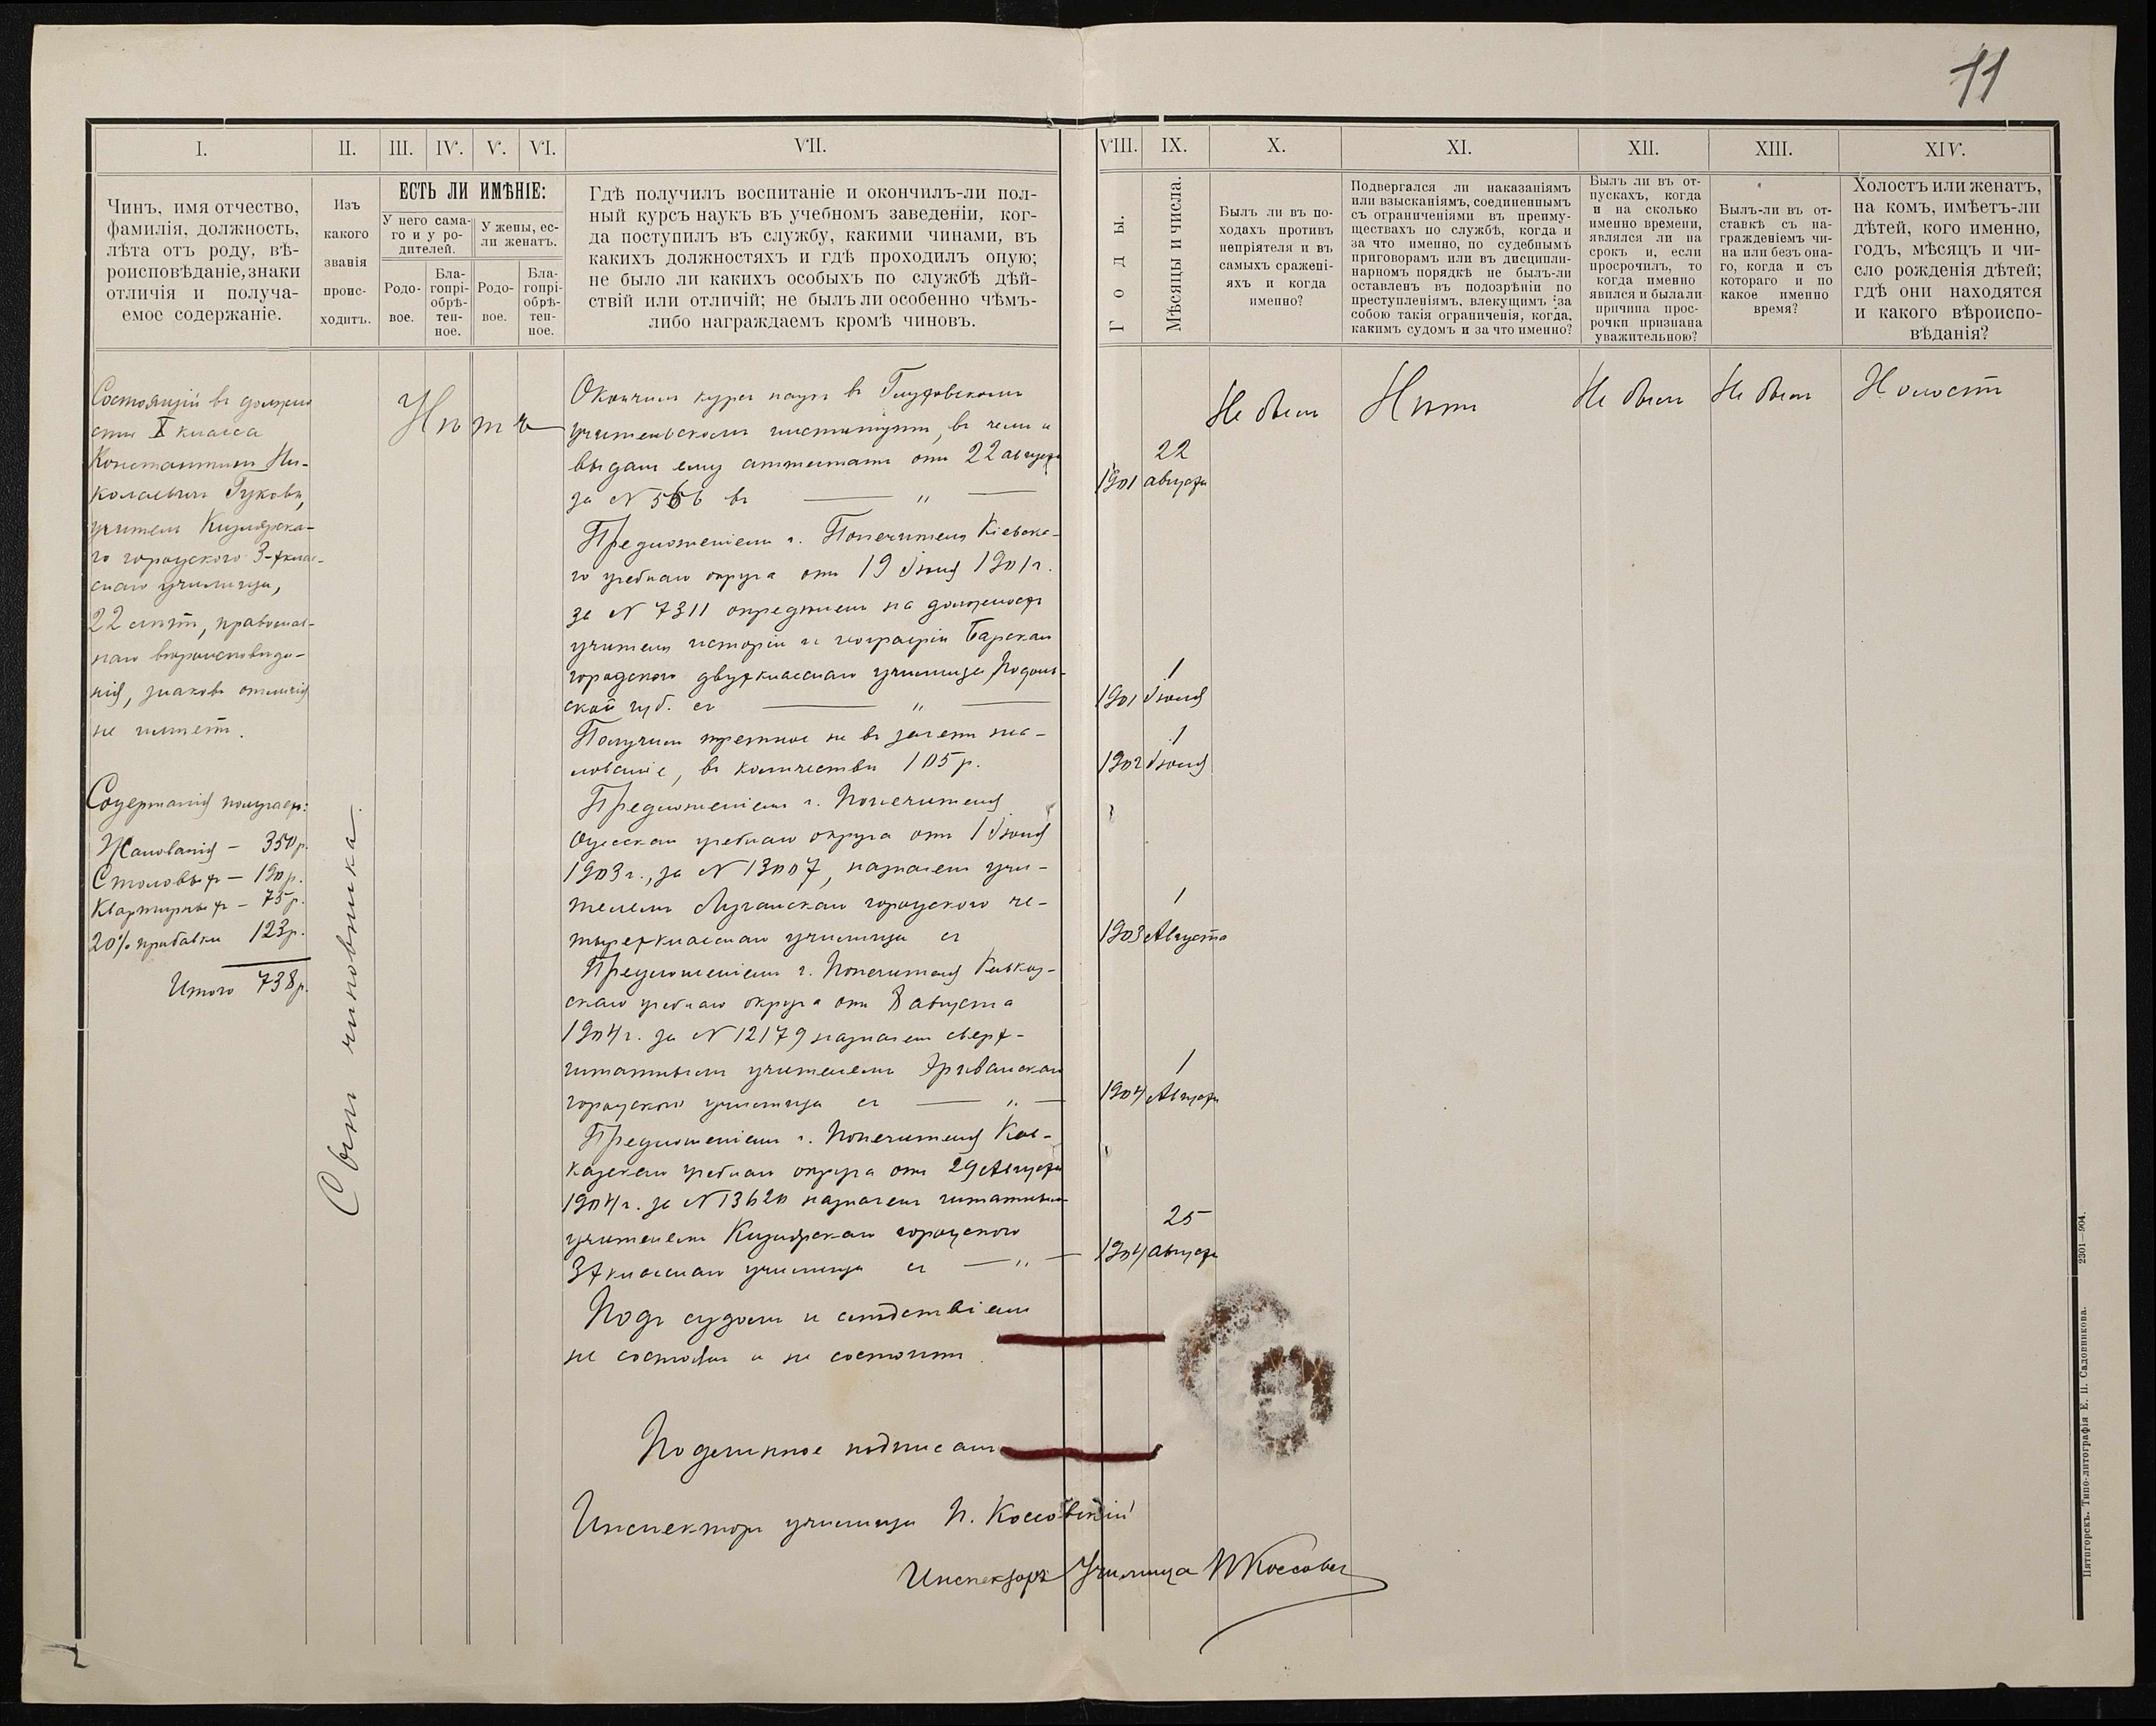 11
I.
II.
III.
IV.
V.
VI.
VII.
VIII.
IX.
X.
XI.
XII.
XIII.
XIV.
Чинъ, имя отчество,
фамилія, должность,
лѣта отъ роду, вѣ-
роисповѣданіе, знаки
отличія и получа-
емое содержаніе.
Изъ
какого
званія
проис-
ходитъ.
ЕСТЬ ЛИ ИМѢНІЕ:
У него сама-
го и у ро-
дителей.
У жены, ес-
ли женатъ.
Родо-
вое.
Бла-
гопрі-
обрѣ-
тен-
ное.
Родо-
вое.
Бла-
гопрі-
обрѣ-
тен-
ное.
Гдѣ получилъ воспитаніе и окончилъ-ли пол-
ный курсъ наукъ въ учебномъ заведеніи, ког-
да поступилъ въ службу, какими чинами, въ
какихъ должностяхъ и гдѣ проходилъ оную;
не было ли какихъ особыхъ по службѣ дѣй-
ствій или отличій; не былъ ли особенно чѣмъ-
либо награждаемъ кромѣ чиновъ.
Годы.
Мѣсяцы и числа.
Былъ ли въ по-
ходахъ противъ
непріятеля и въ
самыхъ сражені-
яхъ и когда
именно?
Подвергался ли наказаніямъ
или взысканіямъ, соединеннымъ
съ ограниченіями въ преиму-
ществахъ по службѣ, когда и
за что именно, по судебнымъ
приговорамъ или въ дисципли-
нарномъ порядкѣ не былъ-ли
оставленъ въ подозрѣніи по
преступленіямъ, влекущимъ за
собою такія ограниченія, когда,
какимъ судомъ и за что именно?
Былъ ли въ от-
пускахъ, когда
и на сколько
именно времени,
являлся ли на
срокъ и, если
просрочилъ, то
когда именно
явился и былали
причина прос-
рочки признана
уважительною?
Былъ-ли въ от-
ставкѣ съ на-
гражденіемъ чи-
на или безъ она-
го, когда и съ
котораго и по
какое именно
время?
Холостъ или женатъ,
на комъ, имѣетъ-ли
дѣтей, кого именно,
годъ, мѣсяцъ и чи-
сло рожденія дѣтей;
гдѣ они находятся
и какого вѣроиспо-
вѣданія?
Состоящій въ должно
сти X класса
Константинъ Ни-
колаевичъ Гуковъ,
учитель Кизлярска-
го городского 3-хклас-
снаго училища,
22 лѣтъ, православ-
наго вѣроисповѣда-
нія, знаковъ отличія
не имѣетъ.
Содержанія получаетъ:
Жалованія - 350 р.
Столовыхъ - 190 р.
Квартирныхъ - 75 р.
20% прибавки 123 р.
Итого 738 р.
Сынъ чиновника.
Нѣтъ
Окончилъ курсъ наукъ въ Глуховскомъ
учительскомъ институтѣ, въ чемъ и
выданъ ему аттестатъ отъ 22 августа
за № 566 въ — „ —
Предложеніемъ г. Попечителя Кіевска-
го учебнаго округа отъ 19 Іюня 1901 г.
за № 7311 опредѣленъ на должность
учителя исторіи и географіи Барскаго
городского двухкласснаго училища Подоль-
ской губ. съ — „ —
Получилъ третное не въ зачетъ жа-
лованіе, въ количествѣ 105 р.
Предложеніемъ г. Попечителя
Одесскаго учебнаго округа отъ 1 Іюня
1903 г., за № 13007, назначенъ учи-
телемъ Луганскаго городского че-
тырехкласснаго училища съ
Предложеніемъ г. Попечителя Кавказ-
скаго учебнаго округа отъ 8 августа
1904 г. за № 12179 назначенъ сверх-
штатнымъ учителемъ Эриванскаго
городского училища съ — „ —
Предложеніемъ г. Попечителя Кав-
казскаго учебнаго округа отъ 29 Августа
1904 г. за № 13620 назначенъ штатнымъ
учителемъ Кизлярскаго городского
3хкласснаго училища съ — „ —
Подъ судомъ и слѣдствіемъ
не состоялъ и не состоитъ.
Подлинное подписалъ
Инспекторъ училища П. Коссовскій
Инспекторъ Училища
22
1901 августа
1
1901 Іюля
1
1902 Іюля
1
1903 Августа
1
1904 Августа
25
1904 августа
Не былъ
Нѣтъ
Не былъ
Не былъ
Холостъ
Пятигорскъ. Типо-литографія Е. П. Садовникова. 2301—904.